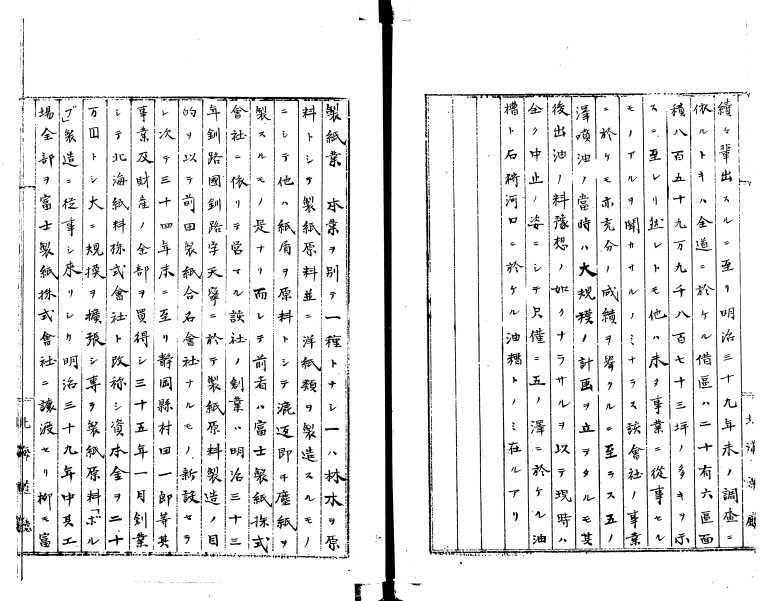 續々輩出スルニ至リ明治三十九年末ノ調査ニ
依ルトキハ全道ニ於ケル借區ハ二十有六區面
積八百五十九万九千八百七十三坪ノ多キヲ示
スニ至レリ然レトモ他ハ未タ事業ニ從事セル
モノアルヲ聞カサルノミナラス該會社ノ事業
ニ於ケモ亦充分ノ成績ヲ擧クルニ至ラス五ノ
澤噴油ノ當時ハ大規模ノ計画ヲ立ヲタルモ其
後出油ノ料豫想ノ如クナラサルヲ以テ現時ハ
全ク中止ノ姿ニシテ只僅ニ五ノ澤ニ於ケル油
槽ト石狩河口ニ於ケル油槽トノミ在ルアリ
製紙業 本業ヲ別テ一種トナシ一ハ林木ヲ原
料トシテ製紙原料並ニ洋紙類ヲ製造スルモノ
ニシテ他ハ紙屑ヲ原料トシテ漉返即チ塵紙ヲ
製スルモノ是ナリ而シテ前者ハ富士製紙株式
會社ニ依リテ営マル該社ノ創業ハ明治三十三
年釧路國釧路字天寧ニ於テ製紙原料製造ノ目
的ヲ以テ前田製紙合名會社ナルモノ新設セラ
レ次テ三十四年末ニ至リ静岡縣村田一郎等其
事業及財産ノ全部ヲ買得シ三十五年一月創業
シテ北海紙料株式會社ト改称シ資本金ヲ二十
万円トシ大ニ規模ヲ擴張シ専ラ製紙原料「ボル
プ」製造ニ從事シ来リシカ明治三十九年中其工
場全部ヲ富士製紙株式會社ニ讓渡セリ抑モ富